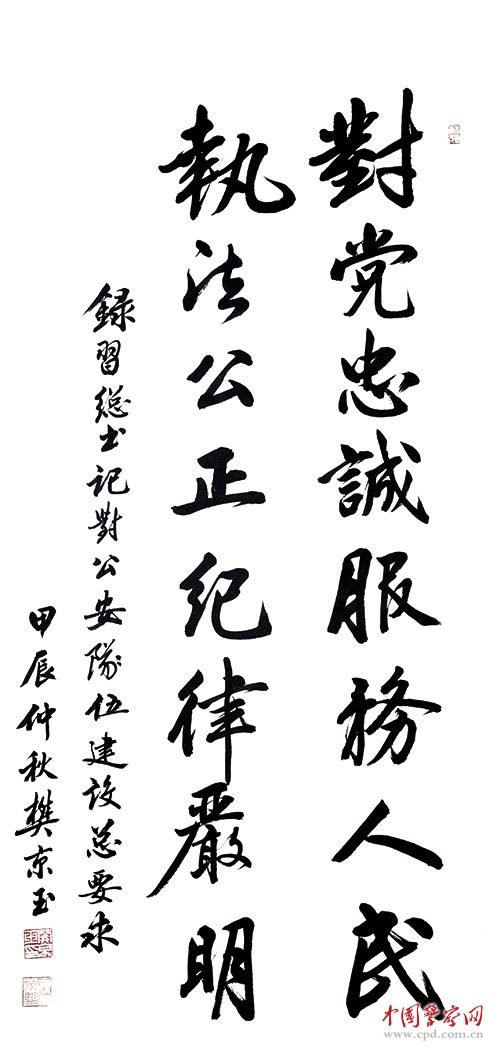 對党忠誠服務人民
執法公正紀律嚴明
録習総书记對公安隊伍建设总要求
甲辰仲秋樊京玉
中国警察网
www.cpd.com.cn